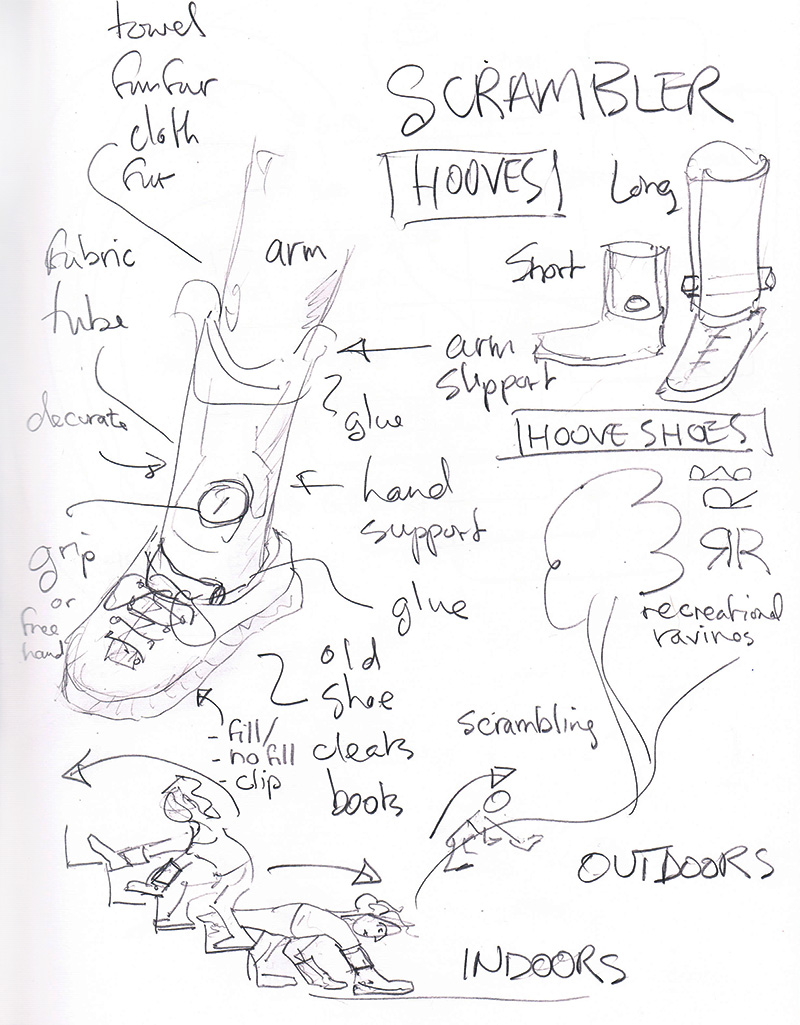 towel
funfur
cloth
fur
SCRAMBLER
HOOVES
Long
Short
arm
fabric
tube
arm
support
glue
decorate
HOOVE SHOES
hand
support
grip
or
free
hand
glue
RR
RR
recreational
ravines
old
shoe
cleats
boots
- fill/
- no fill
- clip
scrambling
OUTDOORS
INDOORS